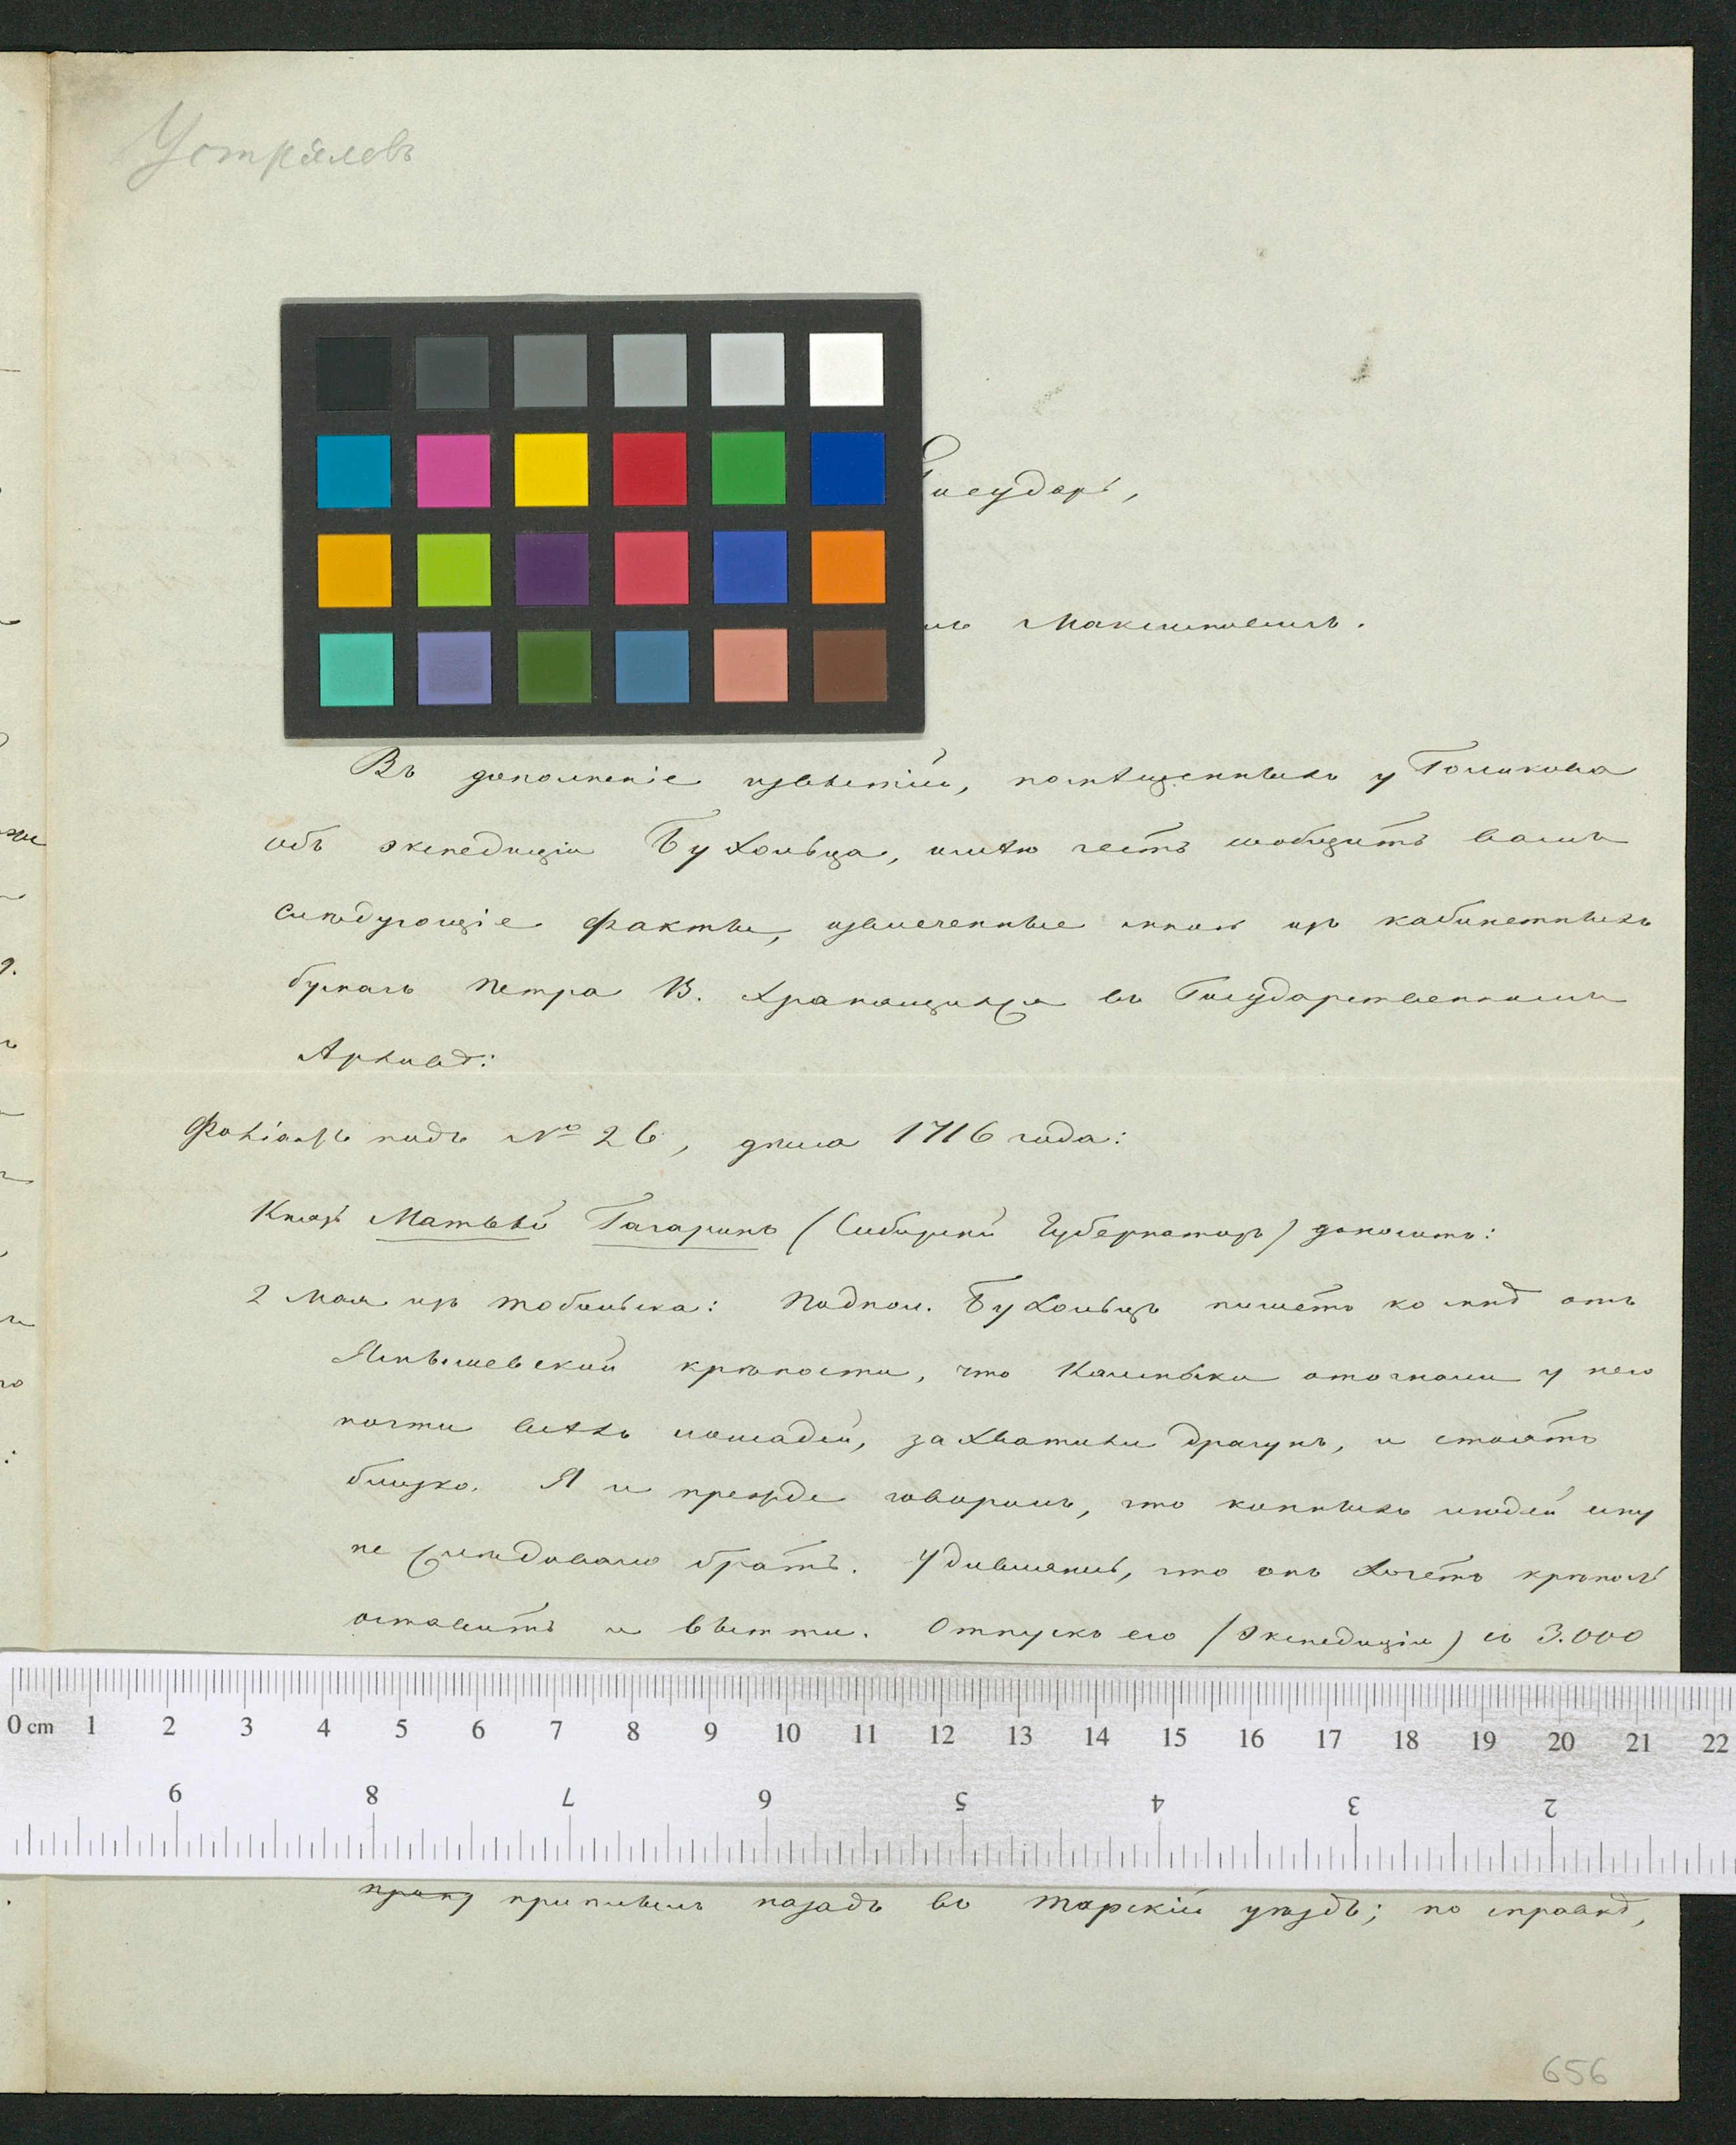 Устрѣловъ
Государь,
Максимовичъ.
Въ дополненіе извѣстій, помѣщенныхъ у Голикова
объ экспедиціи Бухольца, имѣю честь сообщить вамъ
слѣдующіе факты, извлеченные мною изъ кабинетныхъ
бумагъ Петра В. хранящихся въ Государственномъ
Архивѣ:
Фоліантъ подъ № 26, дѣла 1716 года:
Князь Матвѣй Гагаринъ (Сибирскій Губернаторъ) доноситъ:
2 мая изъ Тобольска: Подпол. Бухольцъ пишетъ ко мнѣ отъ
Ямышевской крѣпости, что Калмыки отогнали у него
почти всѣхъ лошадей, захватили драгунъ, и стоятъ
близко. Я и прежде говорилъ, что конныхъ людей ему
не слѣдовало брать. Удивляюсь, что онъ хочетъ крѣпость
оставить и выдти. Отпускъ его (Экспедиціи) съ 3.000
приплылъ назадъ въ Тарскій уѣздъ; по справкѣ,
656
0 cm 1 2 3 4 5 6 7 8 9 10 11 12 13 14 15 16 17 18 19 20 21 22
9 8 7 6 5 4 3 2